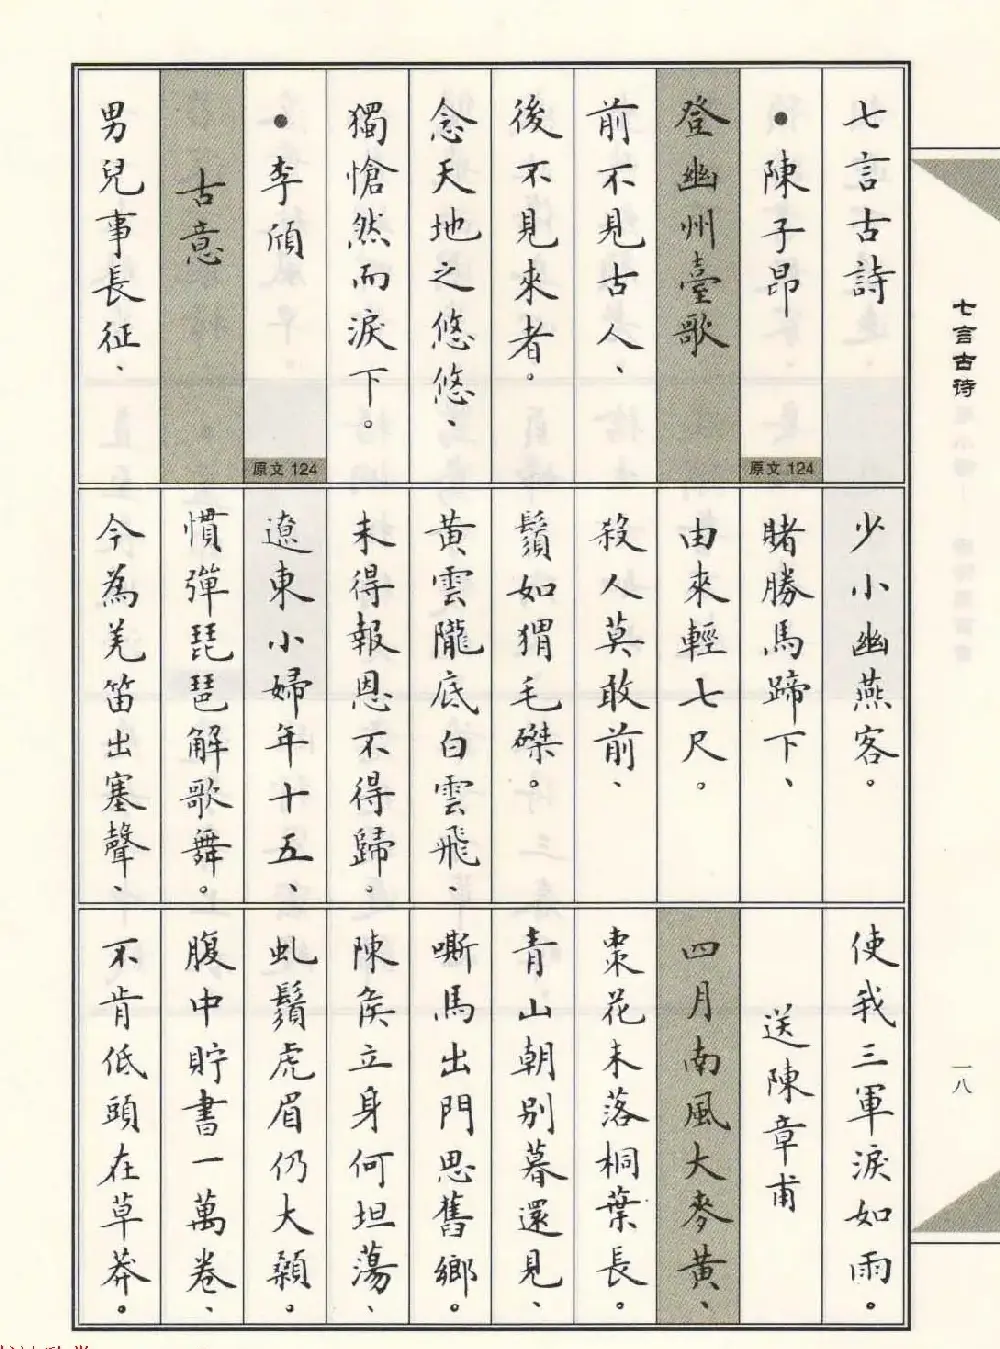 七言古詩
•陳子昂
原文 124
登幽州臺歌
前不見古人、
後不見來者。
念天地之悠悠、
獨愴然而淚下。
•李頎
原文 124
古意
男兒事長征、
少小幽燕客。
賭勝馬蹄下、
由來輕七尺。
殺人莫敢前、
鬚如猬毛磔。
黃雲隴底白雲飛、
未得報恩不得歸。
遼東小婦年十五、
慣彈琵琶解歌舞。
今為羌笛出塞聲、
使我三軍淚如雨。
送陳章甫
四月南風大麥黃、
棗花未落桐葉長。
青山朝別暮還見、
嘶馬出門思舊鄉。
陳侯立身何坦蕩、
虬鬚虎眉仍大顙。
腹中貯書一萬卷、
不肯低頭在草莽。
七言古诗
一八